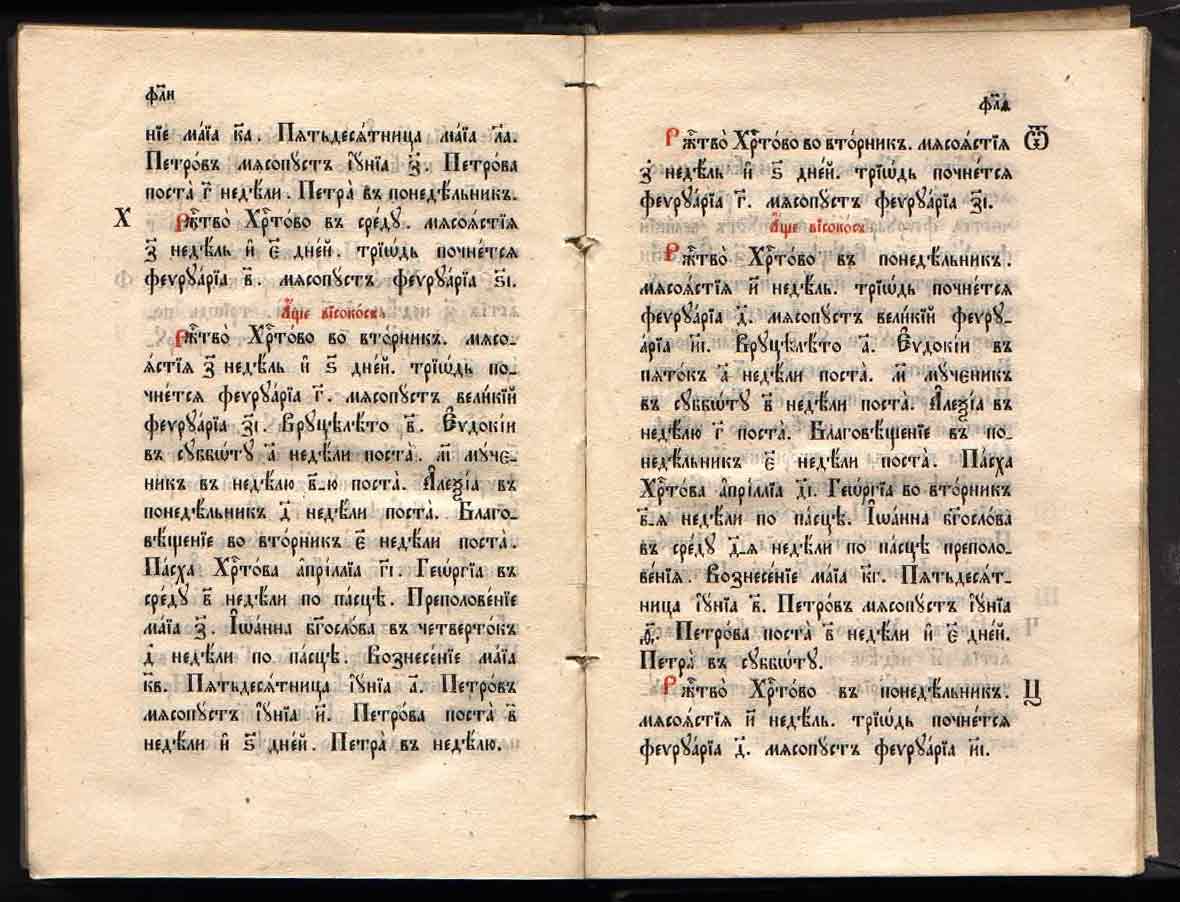 фл҃и
нїе ма́їа к҃а. Пѧтьдесѧ́тница ма́їа л҃а.
Петро́въ мѧсопу́стъ і҆ꙋ́нїа з҃. Петро́ва
поста̀ г҃ недѣ́ли. Петра̀ въ понедѣ́льникъ.
Х
Ржⷭ҇тво̀ Хрⷭ҇то́во въ сре́дꙋ. мѧсоѧ́стїѧ
з҃ недѣ́ль и҆ є҃ дне́й. трїѡ́дь почне́тсѧ
феѵрꙋа́рїа в҃. мѧсопу́стъ феѵрꙋа́рїа ѕ҃і.
А҆́ще високо́съ
Ржⷭ҇тво̀ Хрⷭ҇то́во во вто́рникъ. мѧсо-
ѧ́стїѧ з҃ недѣ́ль и҆ ѕ҃ дне́й. трїѡ́дь по-
чне́тсѧ феѵрꙋа́рїа г҃. мѧсопу́стъ вели́кїй
феѵрꙋа́рїа з҃і. Врꙋцѣлѣ́то в҃. Е҆ѵдокі́и
въ сꙋббѡ́тꙋ а҃ недѣ́ли поста̀. м҃ мꙋ́че-
никъ въ недѣ́лю в҃-ю поста̀. А҆леѯі́а въ
понедѣ́льникъ д҃ недѣ́ли поста̀. Благо-
вѣ́щенїе во вто́рникъ є҃ недѣ́ли поста̀.
Па́сха Хрⷭ҇то́ва а҆прі́ллїа г҃і. Гео́ргїа въ
сре́дꙋ в҃ недѣ́ли по па́сцѣ. Преполове́нїе
ма́їа з҃. І҆ѡа́нна бг҃осло́ва въ четверто́къ
д҃ недѣ́ли по па́сцѣ. Вознесе́нїе ма́їа
к҃в. Пѧтьдесѧ́тница і҆ꙋ́нїа а҃. Петро́въ
мѧсопу́стъ і҆ꙋ́нїа и҃. Петро́ва поста̀ в҃
недѣ́ли и҆ ѕ҃ дне́й. Петра̀ въ недѣ́лю.
фл҃ѳ
Ржⷭ҇тво̀ Хрⷭ҇то́во во вто́рникъ. мѧсоѧ́стїѧ
Ѿ
з҃ недѣ́ль и҆ ѕ҃ дне́й. трїѡ́дь почне́тсѧ
феѵрꙋа́рїа г҃. мѧсопу́стъ феѵрꙋа́рїа з҃і.
А҆́ще високо́съ
Ржⷭ҇тво̀ Хрⷭ҇то́во въ понедѣ́льникъ.
мѧсоѧ́стїѧ и҃ недѣ́ль. трїѡ́дь почне́тсѧ
феѵрꙋа́рїа д҃. мѧсопу́стъ вели́кїй феѵрꙋ-
а́рїа и҃і. Врꙋцѣлѣ́то а҃. Е҆ѵдокі́и въ
пѧто́къ а҃ недѣ́ли поста̀. м҃ мꙋ́ченикъ
въ сꙋббѡ́тꙋ в҃ недѣ́ли поста̀. А҆леѯі́а въ
недѣ́лю г҃ поста̀. Благовѣ́щенїе въ по-
недѣ́льникъ є҃ недѣ́ли поста̀. Па́сха
Хрⷭ҇то́ва а҆прі́ллїа д҃і. Гео́ргїа во вто́рникъ
в҃-ѧ недѣ́ли по па́сцѣ. І҆ѡа́нна бг҃осло́ва
въ сре́дꙋ д҃-ѧ недѣ́ли по па́сцѣ преполо-
ве́нїѧ. Вознесе́нїе ма́їа к҃г. Пѧтьдесѧ́т-
ница і҆ꙋ́нїа в҃. Петро́въ мѧсопу́стъ і҆ꙋ́нїа
ѳ҃. Петро́ва поста̀ в҃ недѣ́ли и҆ є҃ дне́й.
Петра̀ въ сꙋббѡ́тꙋ.
Ржⷭ҇тво̀ Хрⷭ҇то́во въ понедѣ́льникъ.
Ц
мѧсоѧ́стїѧ и҃ недѣ́ль. трїѡ́дь почне́тсѧ
феѵрꙋа́рїа д҃. мѧсопу́стъ феѵрꙋа́рїа и҃і.